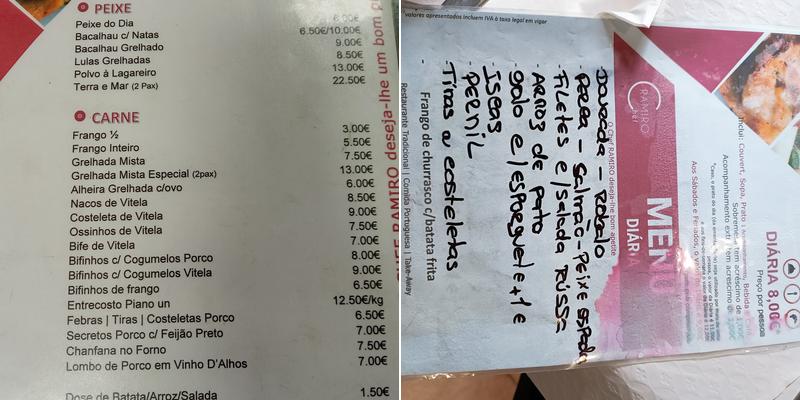 PEIXE
Peixe do Dia
Bacalhau c/ Natas 6.50€/10.00€
Bacalhau Grelhado 9.00€
Lulas Grelhadas 8.50€
Polvo à Lagareiro 13.00€
Terra e Mar (2 Pax) 22.50€
CARNE
Frango ½ 3.00€
Frango Inteiro 5.50€
Grelhada Mista 7.50€
Grelhada Mista Especial (2pax) 13.00€
Alheira Grelhada c/ovo 6.00€
Nacos de Vitela 8.50€
Costeleta de Vitela 9.00€
Ossinhos de Vitela 7.50€
Bife de Vitela 7.00€
Bifinhos c/ Cogumelos Porco 8.00€
Bifinhos c/ Cogumelos Vitela 9.00€
Bifinhos de frango 6.50€
Entrecosto Piano un 12.50€/kg
Febras | Tiras | Costeletas Porco 6.50€
Secretos Porco c/ Feijão Preto 7.00€
Chanfana no Forno 7.50€
Lombo de Porco em Vinho D'Alhos 7.00€
Dose de Batata/Arroz/Salada 1.50€
RAMIRO deseja-lhe um bom
Restaurante Tradicional | Comida Portuguesa | Take-Away
DIÁRIA 8.00€
Preço por pessoa
Inclui: Couvert, Sopa, Prato
Bebida
Acompanhamento
Aos Sábados e Feriados, o
MENU
DIÁRIA
RAMIRO
O Chef RAMIRO deseja-lhe bom apetite
Dourada - Robalo
Perca - Salmão - Peixe espada
Filetes c/ Salada Russa
- Arroz de Pato
- Iscas
- Pernil
- Tiras e costeletas
- Frango de churrasco c/batata frita
valores apresentados incluem IVA à taxa legal em vigor